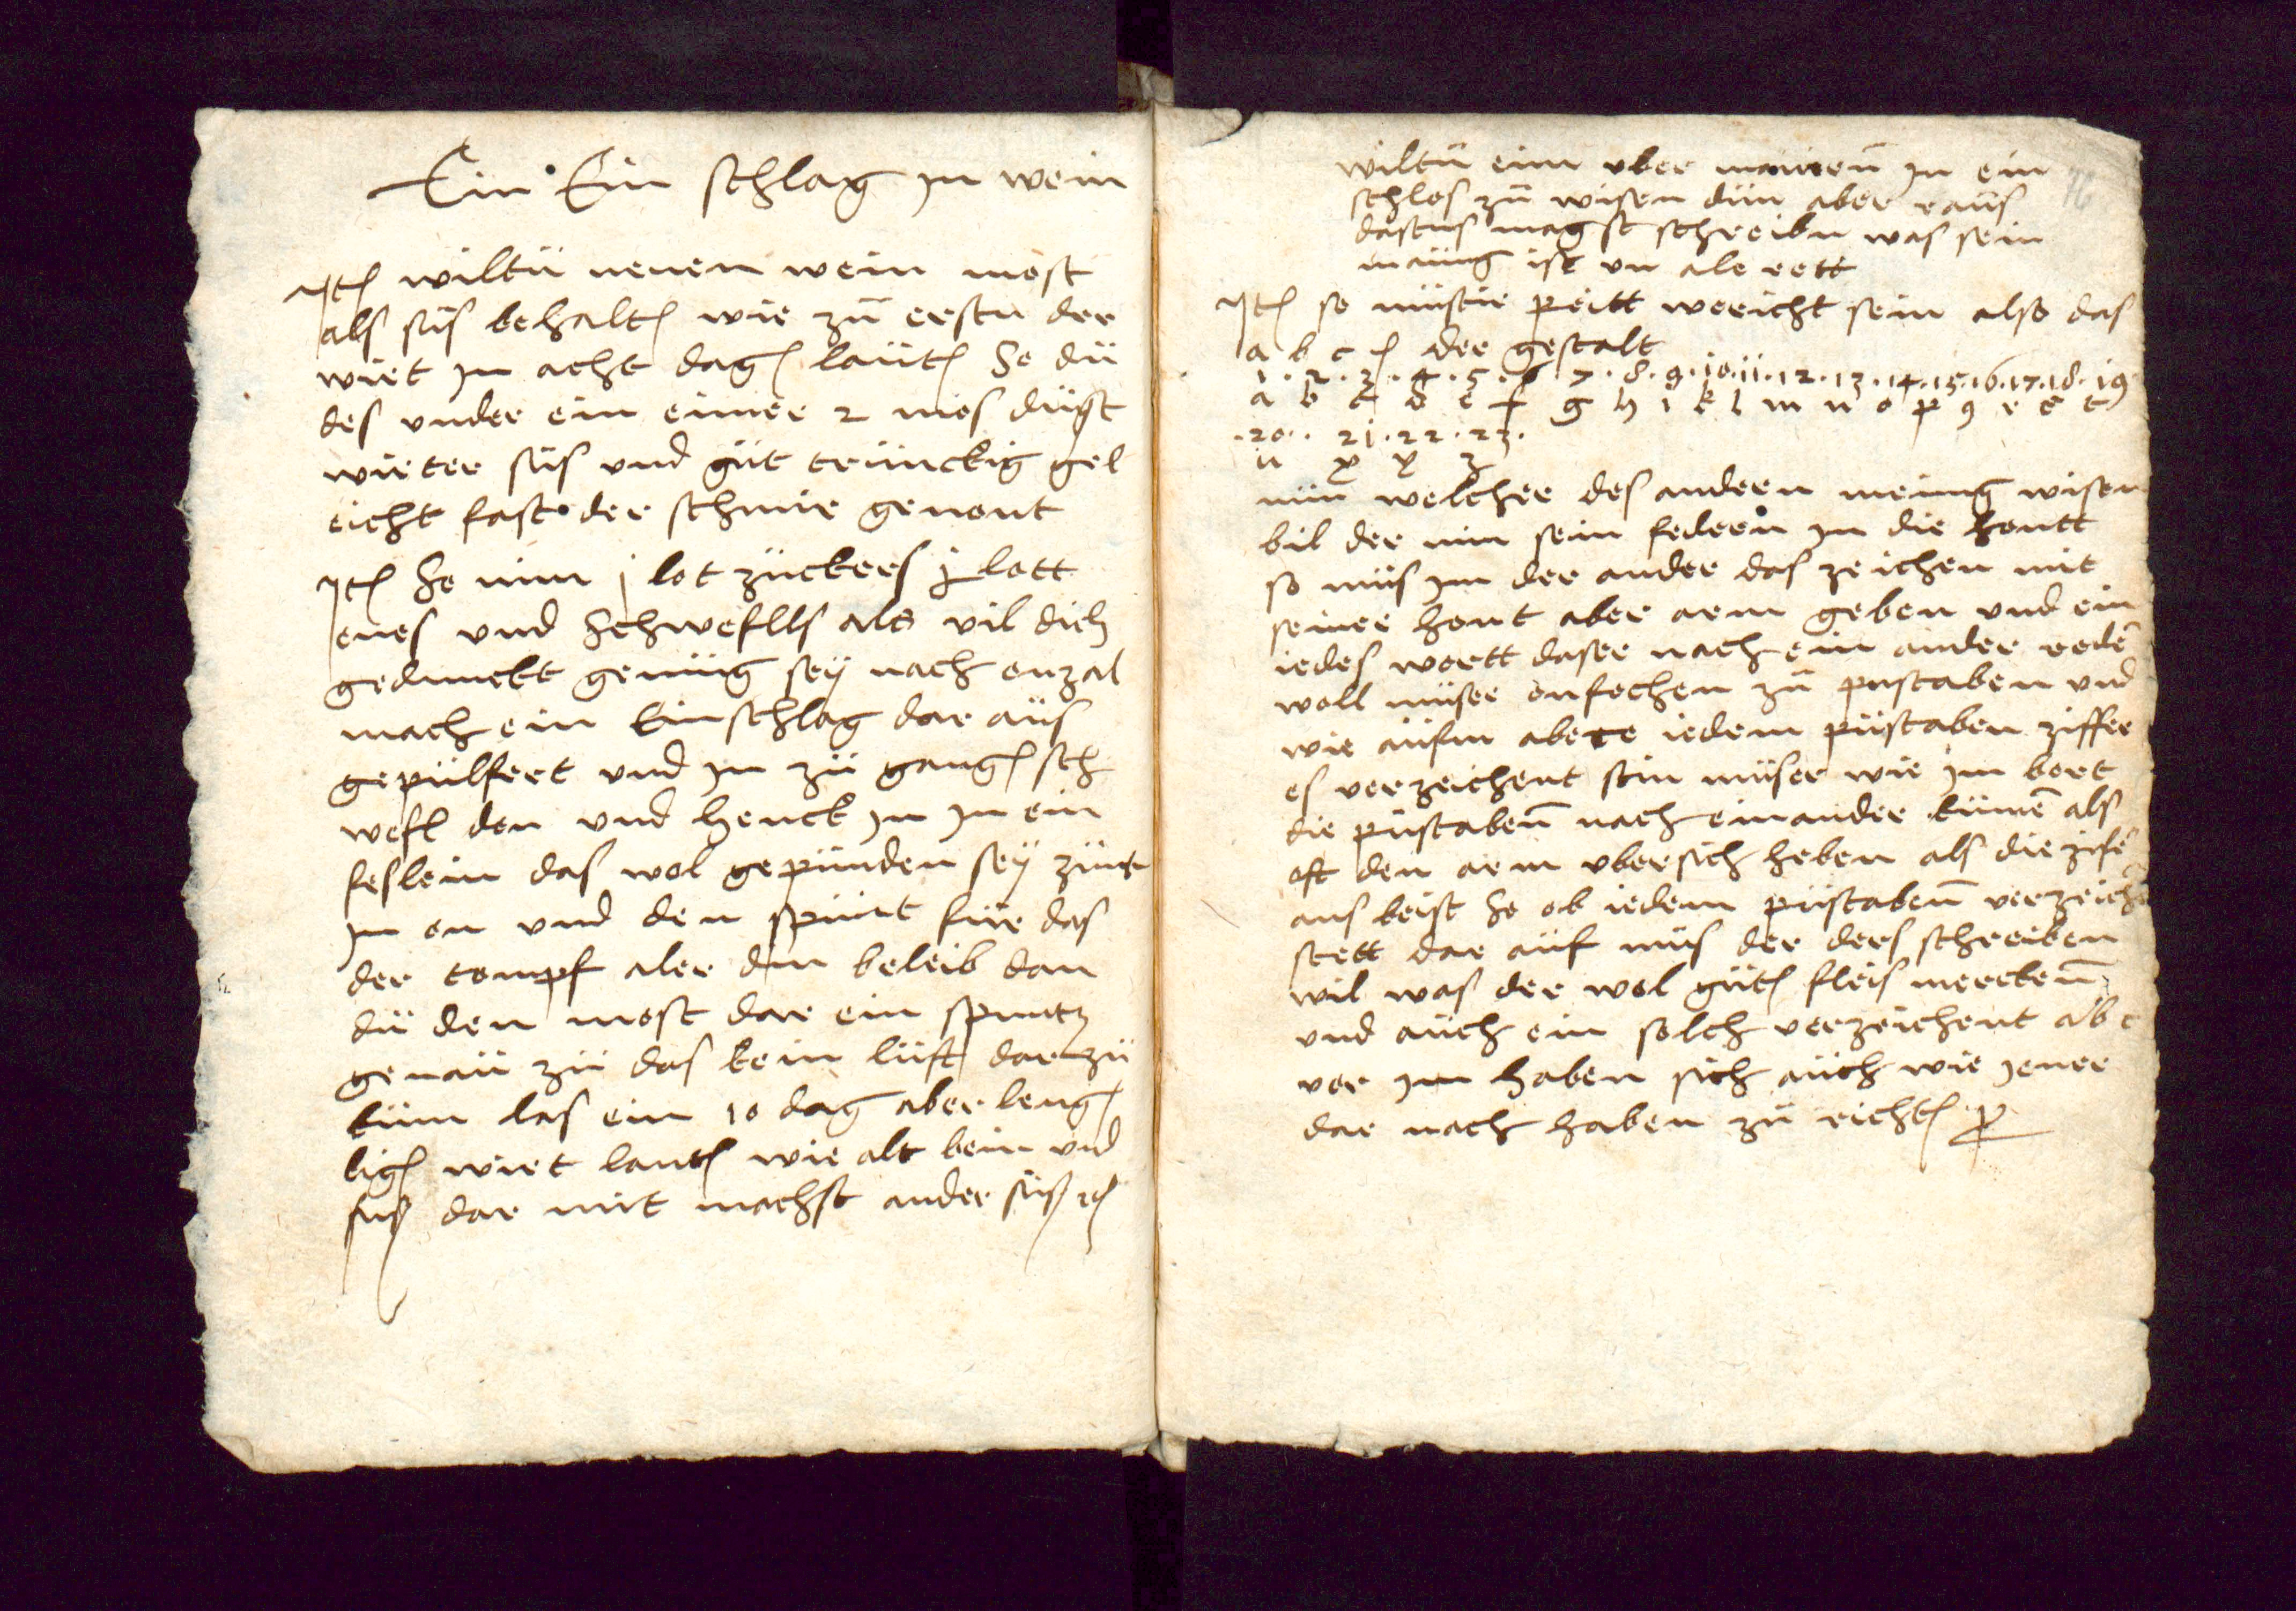 Ein Ein schlag in wein
Jt[em] wiltu neuen wein most
als süs behalten wie zu ersten der
wirt in acht dagen lauter So du
des under ein eimer 2 mos dügst
wirter süs und güt trinckig gel
eicht fast der schmir genont
Jt[em] So nim j lot zückers j lott
enes und Schwefells als vil dich
gedunckt genüg sey nach onzal
mach ein Einschlag dar aüs
gepülfert und in zü gangen sch
wefl den und henck in in ein
feslein das wol gepünden sey zünt
in on und den spünt für das
der tompf aler din beleib dan
dü den most dar ein spuntz
genaü zü das kein lüft dar zü
küm las ein 10 dag aber leng
ligen wirt lauter wie alt bein und
süß dar mit machst ander süß etc
76
wiltu eim uber mauren in ein
schlos zu wisen dün aber raus
dastus magst schreibn was sein
maiung ist un ale rett
Jt[em] so müstir peitt wericht sein also das
a b c der gestalt
1 . 2 . 3 . 4 . 5 . 6 7 . 8 . 9 . 10 . 11 . 12 . 13 . 14 . 15 . 16 . 17 . 18 . 19
a b c d e f g h i k l m n o p q r s t
. 20 . . 21 . 22 . 23 .
u x y z
nün welcher des andern meinung wisen
bil der nim sein federn in die hontt
so müs im der ander das zeichen mit
seiner hont aber arm geben und ein
iedes wortt daser nach ein ander reden
woll müser onfechen zu pustaben und
wie aüfm abete iedem püstaben ziffer
es verzeichent sein müser wie im bort
die püstaben nach einander kümen als
oft den arm ubersich heben als die zifer
aus beist So ob iedem püstaben verzeich
stett dar aüf müs der ders schreiben
wil was der wol güten fleis mercken
und aüch ein solch verzeichent abc
vor im haben sich aüch wie jener
dar nach haben zü richten